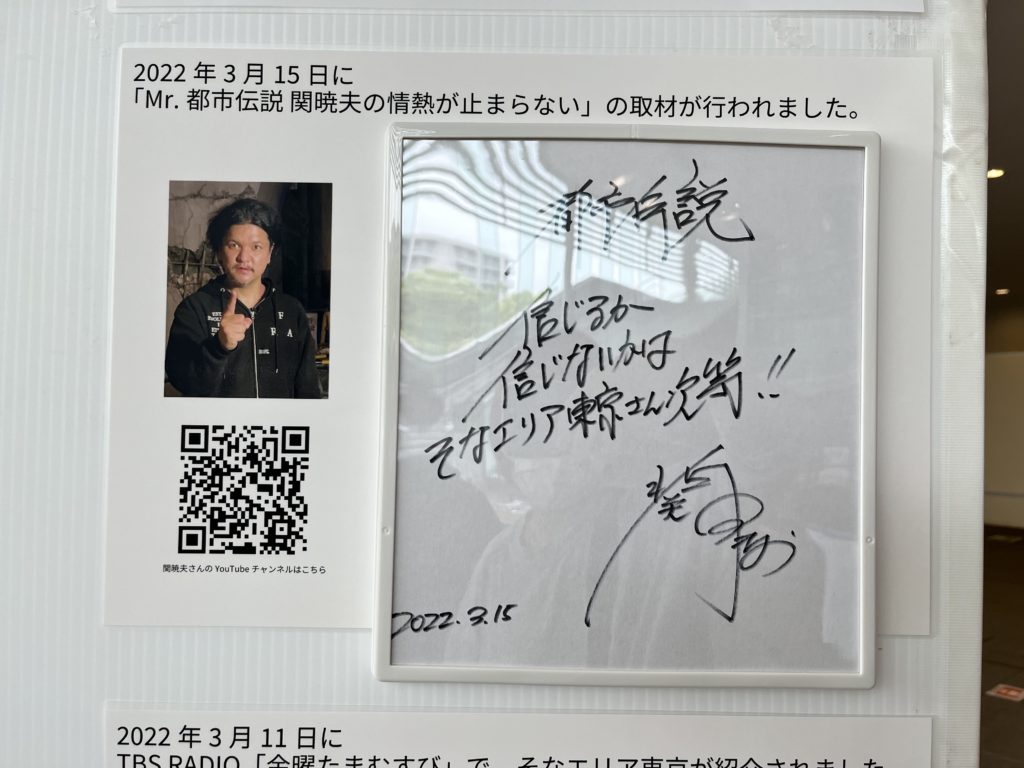 2022 年 3 月 15 日に
「Mr. 都市伝説 関暁夫の情熱が止まらない」の取材が行われました。
都市伝説
信じるか
信じないかは
そなエリア東京さん次第!!
2022.3.15
関暁夫さんの YouTube チャンネルはこちら
2022 年 3 月 11 日に
TBS RADIO「金曜たまむすび」で、そなエリア東京が紹介されました